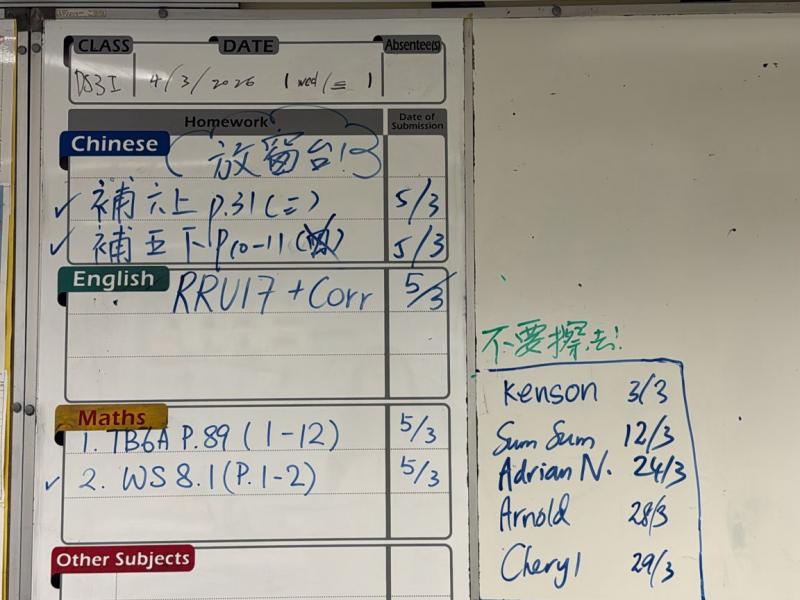 CLASS DATE Absentee(s)
4/3/2026 (wed/三)
Homework Date of Submission
Chinese 放留台!
✓ 補六上 p.31(二) 5/3
✓ 補五下 p10-11 5/3
English RRU17 + Corr 5/3
Maths
1. TB6A P.89 (1-12) 5/3
✓ 2. WS 8.1 (P.1-2) 5/3
Other Subjects
不要擦去!
Kenson 3/3
Sum Sum 12/3
Adrian N. 24/3
Arnold 28/3
Cheryl 29/3